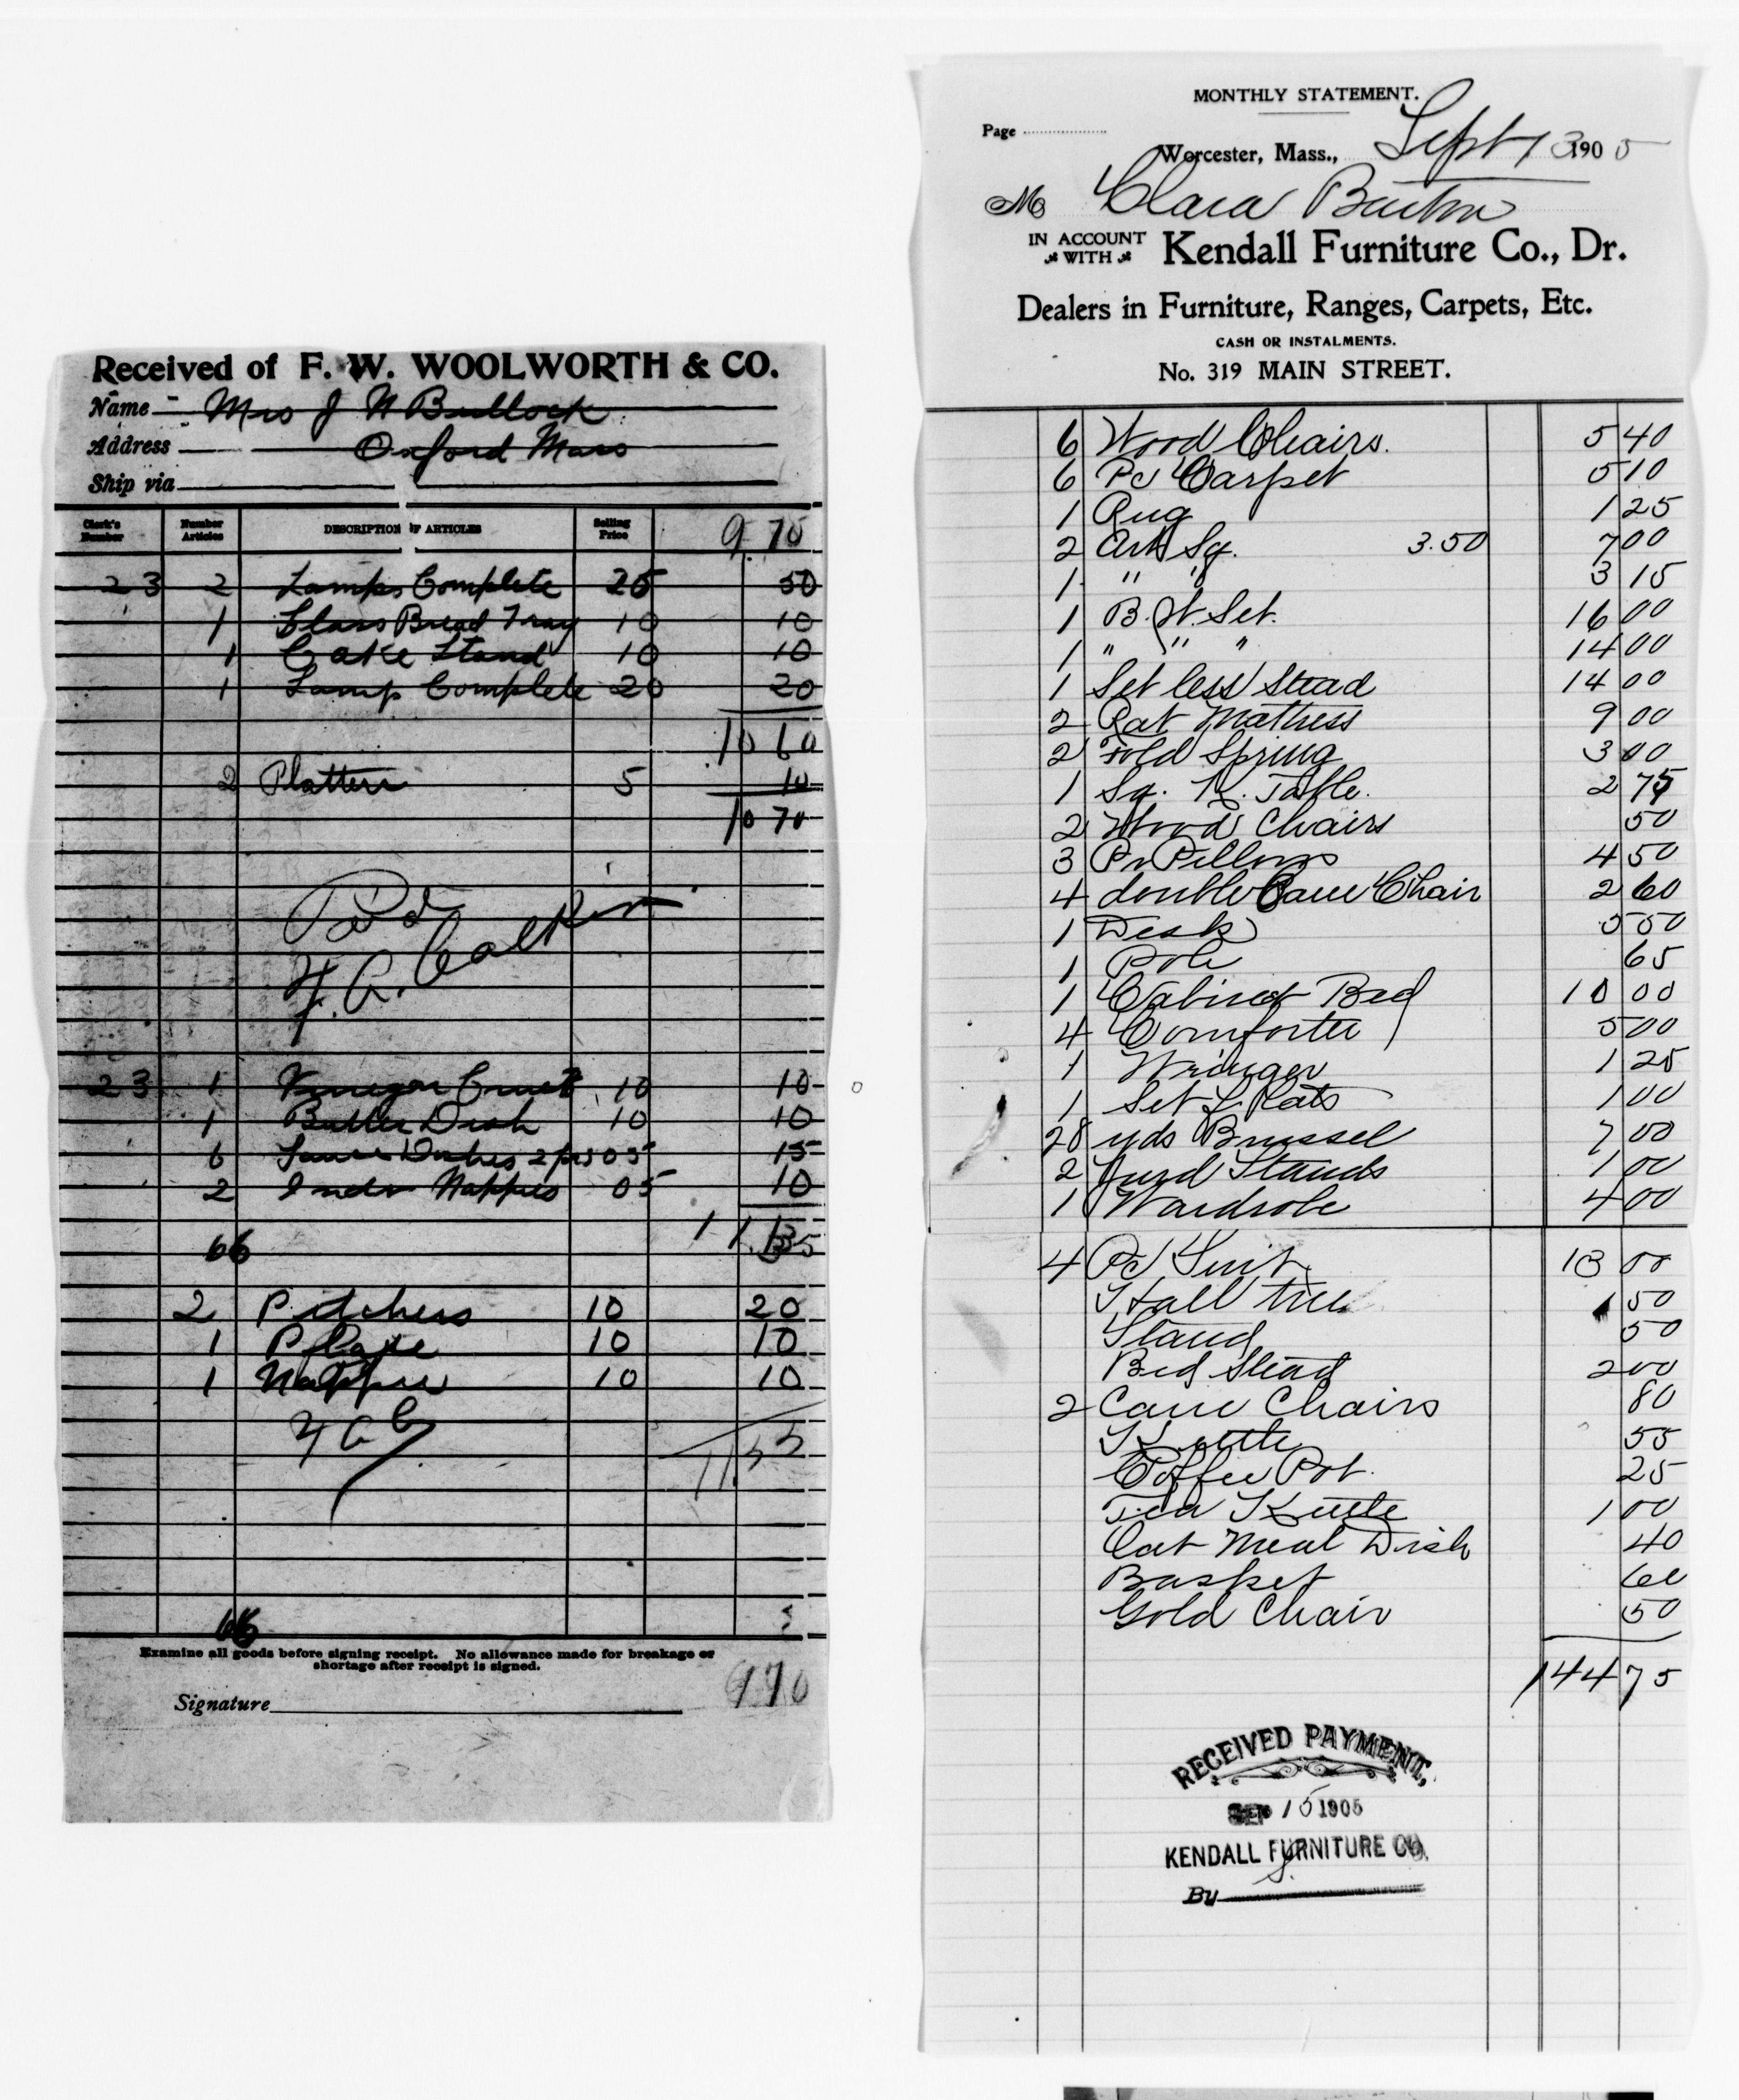 Received of F. W. WOOLWORTH & CO.
Name Mrs J N Bullock
Address Oxford Mass
Ship via
Clerk's Number Number Articles DESCRIPTION OF ARTICLES Selling Price 9.70
23 2 Lamps Complete 25 50
1 Glass Bread Tray 10 10
1 Cake Stand 10 10
1 Lamp Complete 20 20
10 60
2 Platters 5 10
10 70
Paid
F. A. Calkins
23 1 Vinegar Cruet 10 10
1 Butter Dish 10 10
6 Sauce Dishes 2 for 05 15
2 Nappies 05 10
66
2 Pitchers 10 20
1 Plate 10 10
1 Nappie 10 10
FAC
11.55
66
Examine all goods before signing receipt. No allowance made for breakage or
shortage after receipt is signed.
Signature
MONTHLY STATEMENT.
Page
Worcester, Mass., Sept 13 1905
M Clara Barton
IN ACCOUNT WITH Kendall Furniture Co., Dr.
Dealers in Furniture, Ranges, Carpets, Etc.
CASH OR INSTALMENTS.
No. 319 MAIN STREET.
6 Wood Chairs. 5 40
6 Pc Carpet 5 10
1 Rug 1 25
2 Art Sq. 3.50 7 00
1 " " 3 15
1 B. W. Set. 16 00
1 " " " 14 00
1 Set less Stead 14 00
2 Rat Mattress 9 00
2 Fold Spring 3 00
1 Sq. K. Table. 2 75
2 Wood Chairs 50
3 Pr Pillows 4 50
4 double Cane Chair 2 60
1 Desk 5 50
1 Pole 65
1 Cabinet Bed 10 00
4 Comforter 5 00
1 Wringer 1 25
1 Set Flats 1 00
28 yds Brussel 7 00
2 Stands 1 00
1 Wardrobe 4 00
4 Pc Suit 13 00
Hall tree 50
Stand 50
Bed Stead 2 00
2 Cane Chairs 80
Kettle 55
Coffee Pot. 25
Tea Kettle 1 00
Oat Meal Dish 40
Basket 60
Gold Chair 50
144 75
RECEIVED PAYMENT,
SEP 15 1905
KENDALL FURNITURE CO.
By